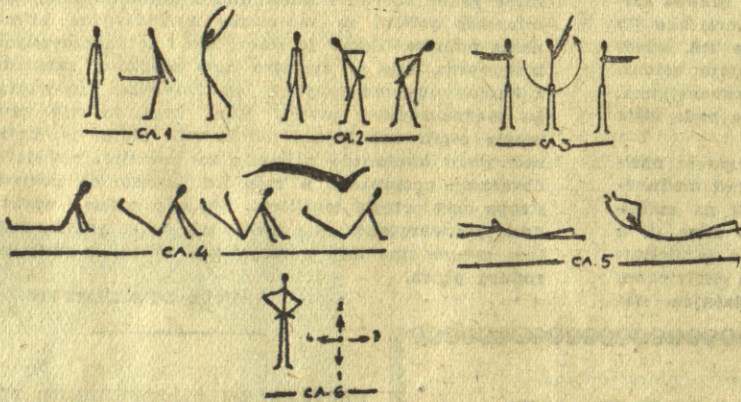 СЛ.1 СЛ.2 СЛ.3
СЛ.4 СЛ.5
2
4 3
1
СЛ.6